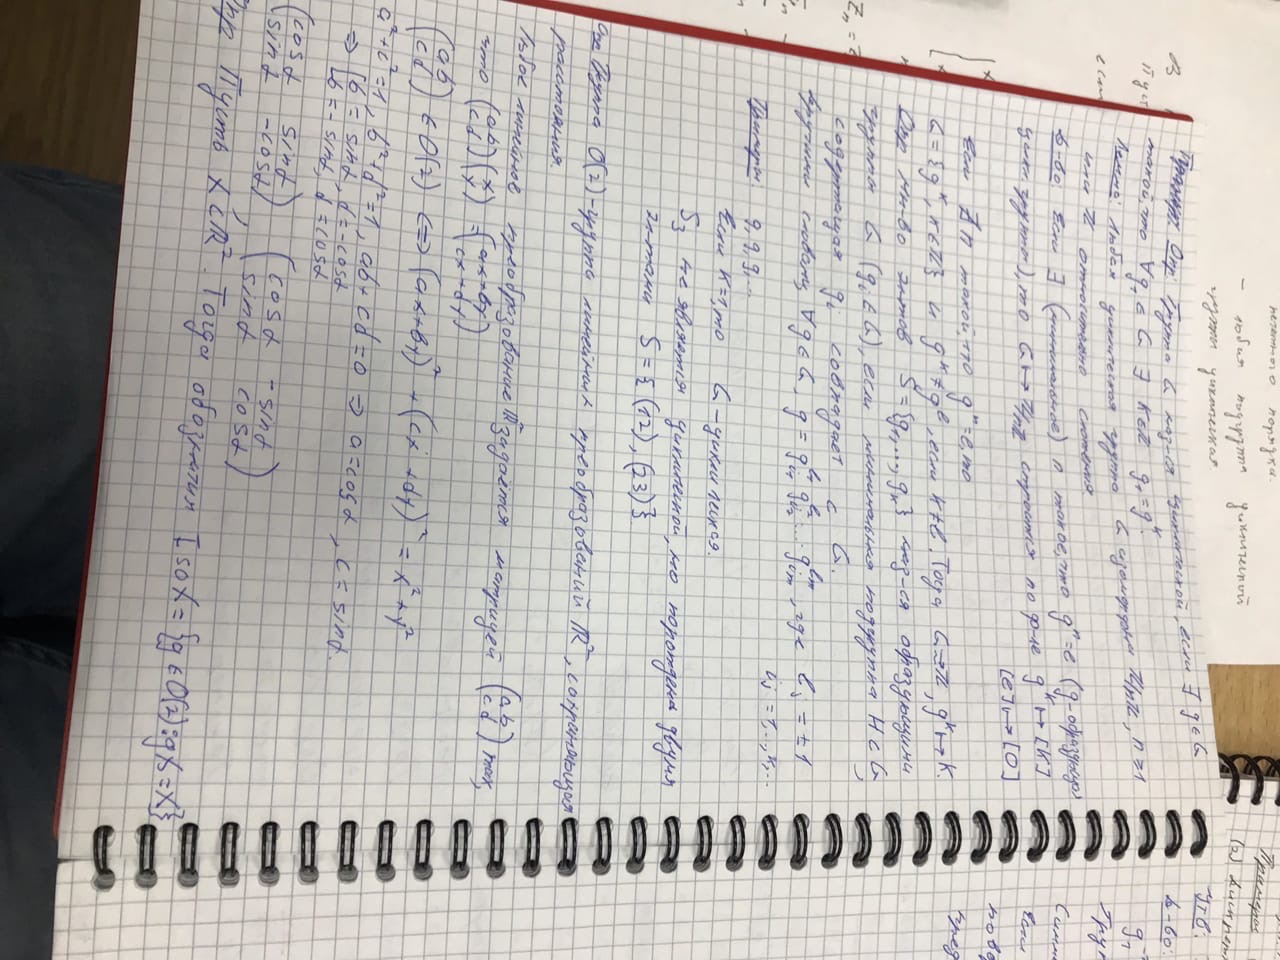 печетного порядка.
- любая подгруппа циклической
группы циклическая.
Примеры
(а) Дискретн
Утв:
Д-во:
g₁
Груп
Симм
Если
повор
пред
В
Пуст
если
Опр: Группа G наз-ся циклической, если ∃ g∈G
такой, что ∀g₁ ∈ G ∃ k∈ℤ g₁ = gᵏ.
Лемма: Любая циклическая группа G изоморфна ℤ/nℤ, n ≥ 1
или ℤ относительно сложения.
Д-во: Если ∃ (минимальное) n такое, что gⁿ = e (g-образующая
цикл. группы), то G ↦ ℤ/nℤ строится по ф-ле gᵏ ↦ [k]
[e] ↦ [0]
Если ∄ n такой, что gⁿ = e, то
G = {gᵏ, k∈ℤ} и gᵏ ≠ gˡ, если k ≠ l. Тогда G ≅ ℤ, gᵏ ↦ k.
Опр Мн-во эл-тов S = {g₁, ..., gₖ} наз-ся образующими
группы G (gᵢ ∈ G), если минимальная подгруппа H ⊂ G,
содержащая gᵢ совпадает с G.
Другими словами, ∀g ∈ G, g = g_{i₁}^{l₁} g_{i₂}^{l₂} ... g_{iₘ}^{lₘ}, где lⱼ = ±1
iⱼ = 1,..,k,..
Примеры: g, g, g, ...
Если k=1, то G - циклическая.
S₃ не является циклической, но порождена двумя
эл-тами S = { (12), (23) }
Опр Группа O(2) - группа линейных преобразований ℝ², сохраняющая
расстояния.
Любое линейное преобразование ℝ² задаётся матрицей (a b; c d) так,
что (a b; c d)(x; y) = (ax+by; cx+dy)
(a b; c d) ∈ O(2) ⟺ (ax+by)² + (cx+dy)² = x²+y²
a²+c²=1, b²+d²=1, ab+cd=0 ⇒ a=cosα, c=sinα.
⇒ [b = sinα, d = -cosα
[b = -sinα, d = cosα
(cosα sinα; sinα -cosα), (cosα -sinα; sinα cosα)
Опр Пусть X ⊂ ℝ². Тогда обозначим Iso X = {g ∈ O(2): gX = X}